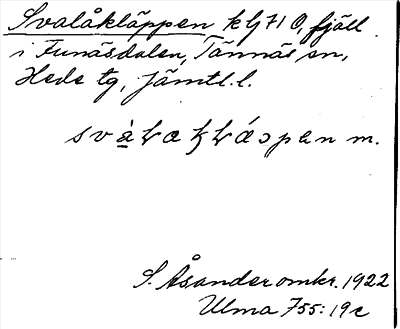 Svalåkläppen klj 71 O, fjäll
i Funäsdalen, Tännäs sn,
Hede tg, Jämtl. l.
m.
S. Åsander omkr. 1922
Ulma 755: 19 c